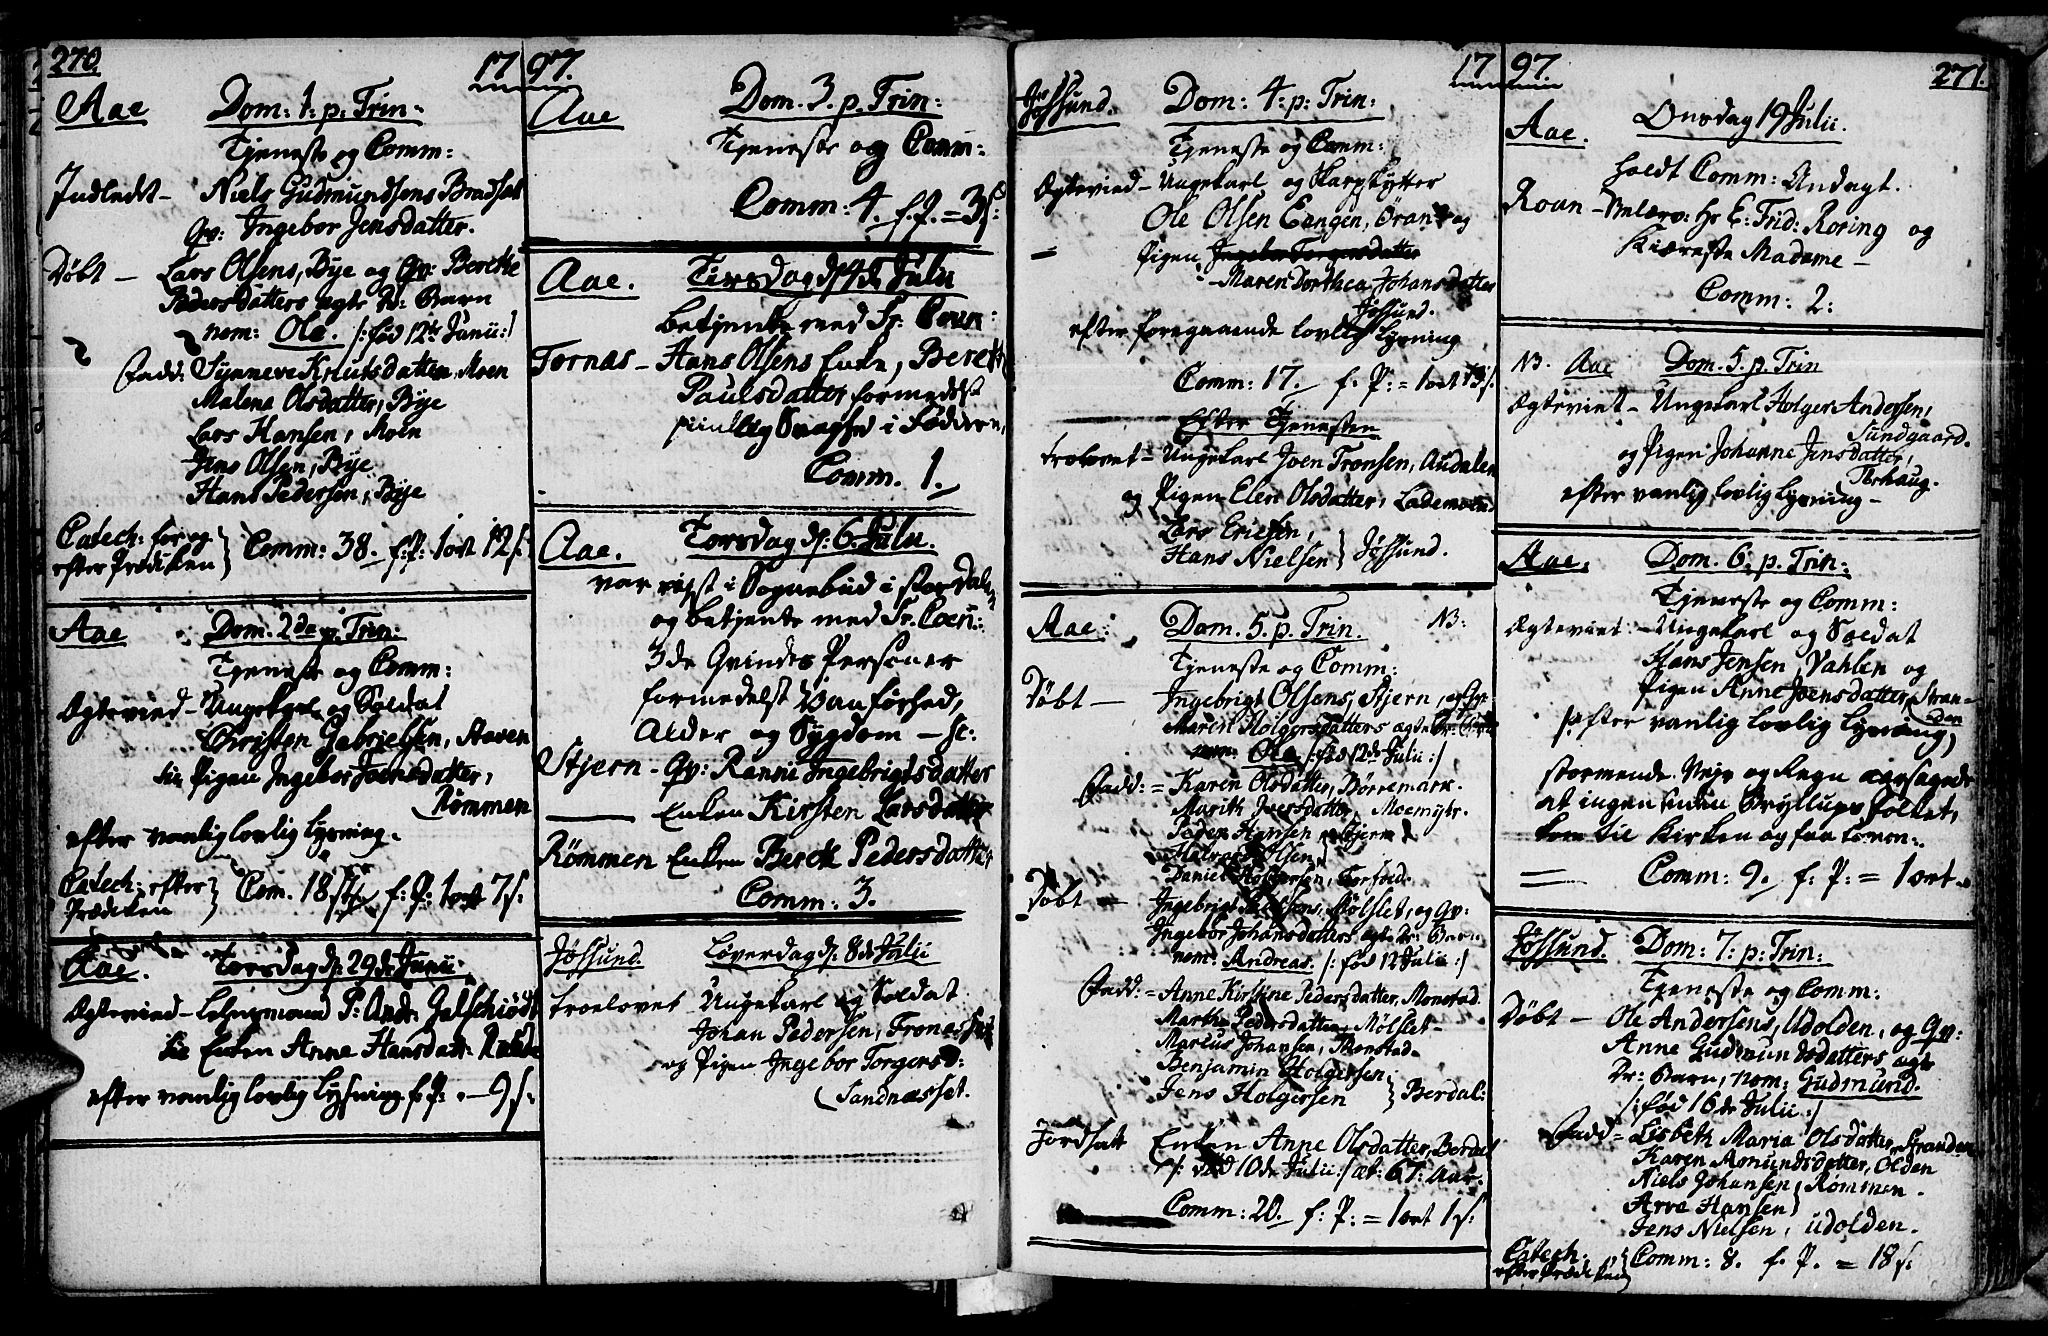 270.
17 97.
Aae Dom: 1: p: Trin:
Tjeneste og Comm:
Indledet - Niels Gudmundsens
Qv: Ingebor Jensdatter.
Døbt - Lars Olsens, Bye og Qv: Berethe
Pedersdatters ægte Dr: Barn
nom: Ole. /: fød 12te Junii :/
Fadd: Synneve Knutsdatter, Moen
Malene Olsdatter, Bye
Lars Hansen, Moen
Jens Olsen, Bye
Hans Pedersen, Bye
Catech: for og
efter Prædiken } Comm: 38. f: P: 1 ort 12 s:
Aae Dom. 2de p. Trin:
Tjeneste og Comm:
Ægtevied - Ungekarl og Soldat
Christen Gabrielsen, Aaven
til Pigen Ingebor Joensdatter,
Rømmen
efter vanlig lovlig lysning.
Catech: efter
Prædiken } Com. 18 f: P: 1 ort 7 s:
Aae. Torsdag d: 29de Junii
Ægteviet - Lehnsmand P: Andr: Galschiødt
til Enken Anne Hansdatt:
efter vanlig lovlig lysning. f: P: - 9 s:
Aae Dom. 3. p. Trin:
Tjeneste og Comm:
Comm: 4. f. P. = 3 s:
Aae. Tirsdag d: 4de Julii
betjente med Sr. Coen:
Tørnæs - Hans Olsens Enke, Bereth
Paulsdatter formedelst
Svaghed i Føddern,
Comm. 1.
Aae. Torsdag d: 6. Julii.
var reist i Sognebud i Stordalen
og betjente med Sr. Coen:
3de Qvindes Personer
formedelst Vanførhed,
Alder og Sygdom - sc:
Stjern - Qv: Ranni Ingebrigtsdatter
Enken Kirsten Larsdatter
Rømmen Enken Bereth Pedersdatter
Comm: 3.
Jøssund Løverdag d: 8de Julii
troelovet Ungekarl og Soldat
Johan Pedersen,
og Pigen Ingebor Torgersd:
Sandnæsset.
17 97.
271.
Jøssund. Dom: 4: p: Trin:
Tjeneste og Comm:
Ægteviet - Ungekarl og Skarpskytter
Ole Olsen Eangen, Øran og
Pigen Ingebor Torgersdatter
Maren Dorthea Johansdatter
Jøssund.
efter foregaaende lovlig lysning
Comm: 17. f. P: = 1 ort 13 s:
Efter Tjenesten
trolovet = Ungekarl Joen Tronsen, Audalen
og Pigen Elen Olsdatter, Lademoen
Lars Ericksen,
Hans Nielsen } Jøssund.
Aae: Dom. 5. p. Trin. NB:
Tjeneste og Comm:
Døbt - Ingebrigt Olsens, Stjern, og Qv:
Maren Holgersdatters ægte Dr: Barn
nom: Ole /: fød 12de Julii :/
Fadd: = Karen Olsdatter, Børremark.
Marith Joensdatter, Moemyhr.
Peder Hansen, Stjern
Halvor Olsen
Daniel Holgersen, Torfold.
Døbt = Ingebrigt Nielsens, Mølslet, og Qv:
Ingebor Johansdatters ægte Dr: Barn
nom: Andreas. /: fød 12 Julii :/
Fadd: = Anne Kirstine Pedersdatter, Monstad.
Marthe Pedersdatter, Mølslet -
Marcus Johansen, Monstad.
Benjamin Holgersen
Jens Holgersen } Berdal:
Jordsatt Enken Anne Olsdatter, Berdal
/: død 10de Julii :/ æt: 67: Aar.
Comm: 20. f: P: = 1 ort 1 s:
Aae. Onsdag 19 Julii.
holdt Comm: Andagt.
Roan - Velærv: Hr E: Frid: Roring og
Kiæreste Madame -
Comm: 2:
NB. Aae Dom. 5. p. Trin
Ægteviet - Ungekarl Holger Andersen,
Sundgaard.
og Pigen Johanne Jensdatter,
Berhaug.
efter vanlig lovlig lysning -
Aae. Dom. 6. p. Trin:
Tjeneste og Comm:
Ægteviet - Ungekarl og Soldat
Hans Jensen, Vahlen og
Pigen Anne Joensdatter, Stran-
den
efter vanlig lovlig lysning,
stormende Vejr og Regn aarsagede
at ingen uden Bryllups Folket,
kom til Kirken og faa Conon:
Comm: 9. f: P: = 1 ort.
Jøssund. Dom: 7: p: Trin:
Tjeneste og Comm:
Døbt - Ole Andersens, Udolden, og Qv:
Anne Gudmundsdatters ægte
Dr: Barn, nom: Gudmund.
/: fød 16de Julii :/
Fadd = Lisbeth Maria Olsdatter, Stranden
Karen Amundsdatter, Olden
Niels Johansen } Rømmen.
Arve Hansen
Jens Nielsen, Udolden.
Catech:
efter Prædiken } Comm: 8. f. P. = 18 s: